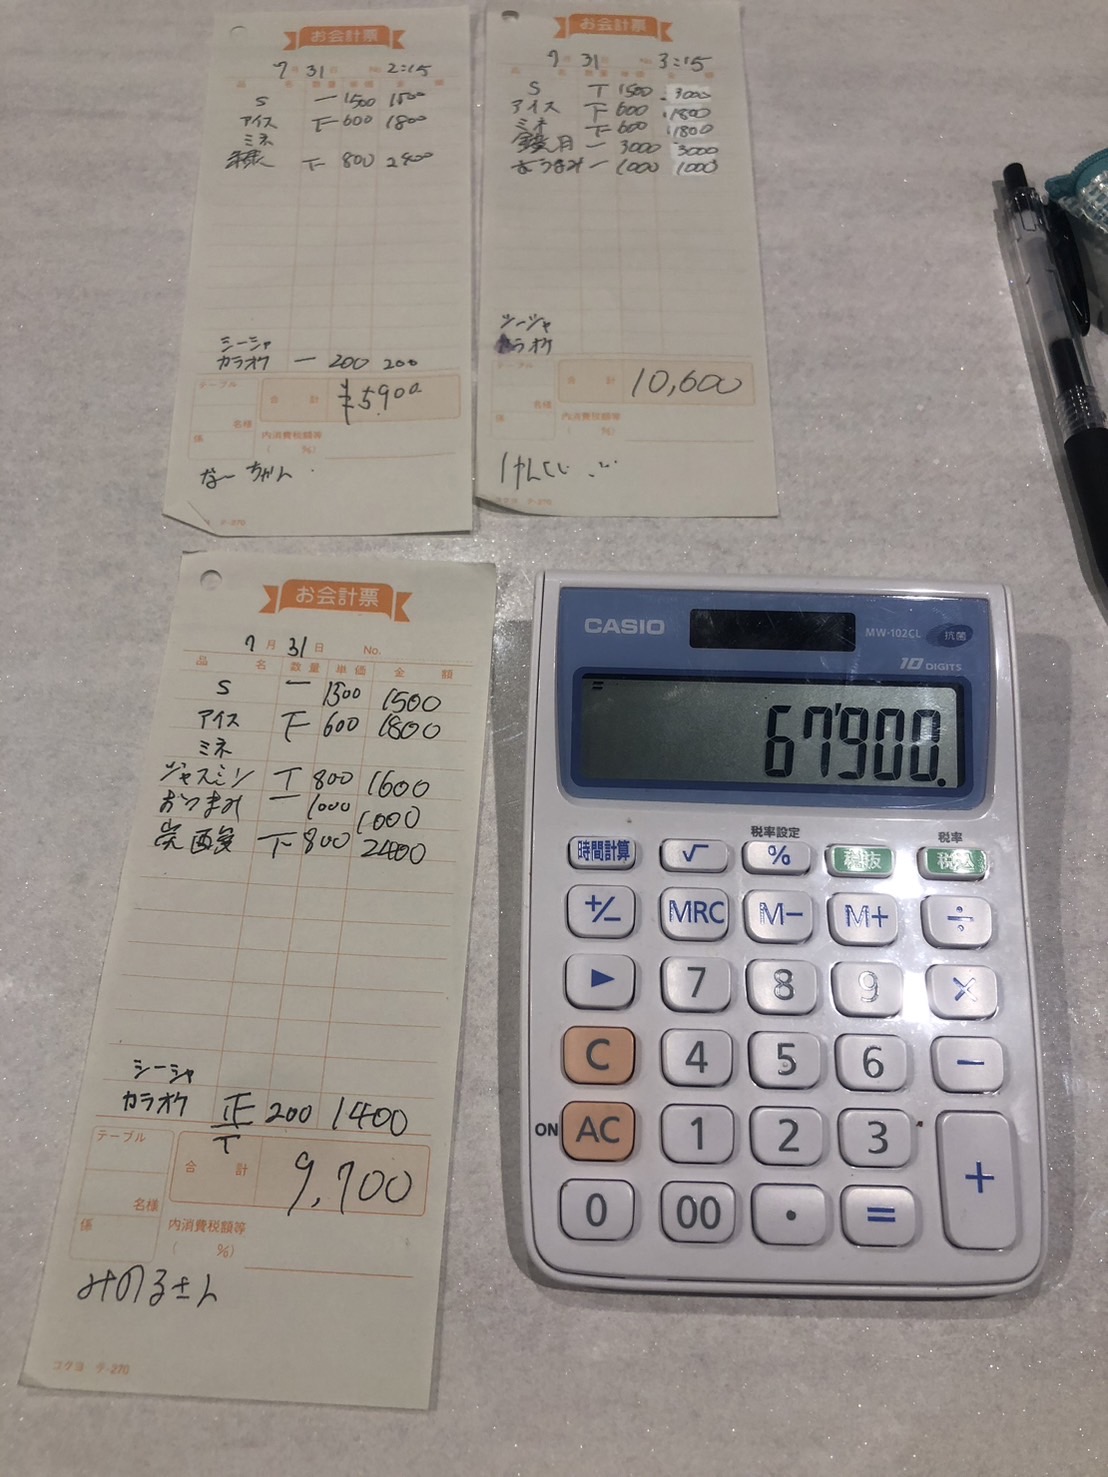 お会計票
7月 31日 No. 2:15
品 名 数量 単価 金 額
S 一 1500 1500
アイス 下 600 1800
ミネ
緑 下 800 2400
シーシャ
カラオケ 一 200 200
テーブル
名様
合 計 ¥5900
係
内消費税額等
( %)
なーちゃん
テ-270
お会計票
7月 31日 3:15
品 名 数量 単価 金 額
S T 1500 3000
アイス 下 600 1800
ミネ 下 600 1800
鏡月 一 3000 3000
おつまみ 一 1000 1000
シーシャ
カラオケ
テーブル
名様
合 計 10,600
係
内消費税額等
( %)
コクヨ テ-270
お会計票
7月 31日 No.
品 名 数量 単価 金 額
S 一 1500 1500
アイス 下 600 1800
ミネ
ジャスミン T 800 1600
おつまみ 一 1000 1000
下 800 2400
シーシャ
カラオケ 正T 200 1400
テーブル
名様
合 計 9,700
係
内消費税額等
( %)
みのるさん
コクヨ テ-270
CASIO
MW-102CL 抗菌
10 DIGITS
67'900.
税率設定 税率
時間計算 √ % 税抜 税込
+/− MRC M− M+ ÷
▶ 7 8 9 ×
C 4 5 6 −
ON AC 1 2 3 +
0 00 • =